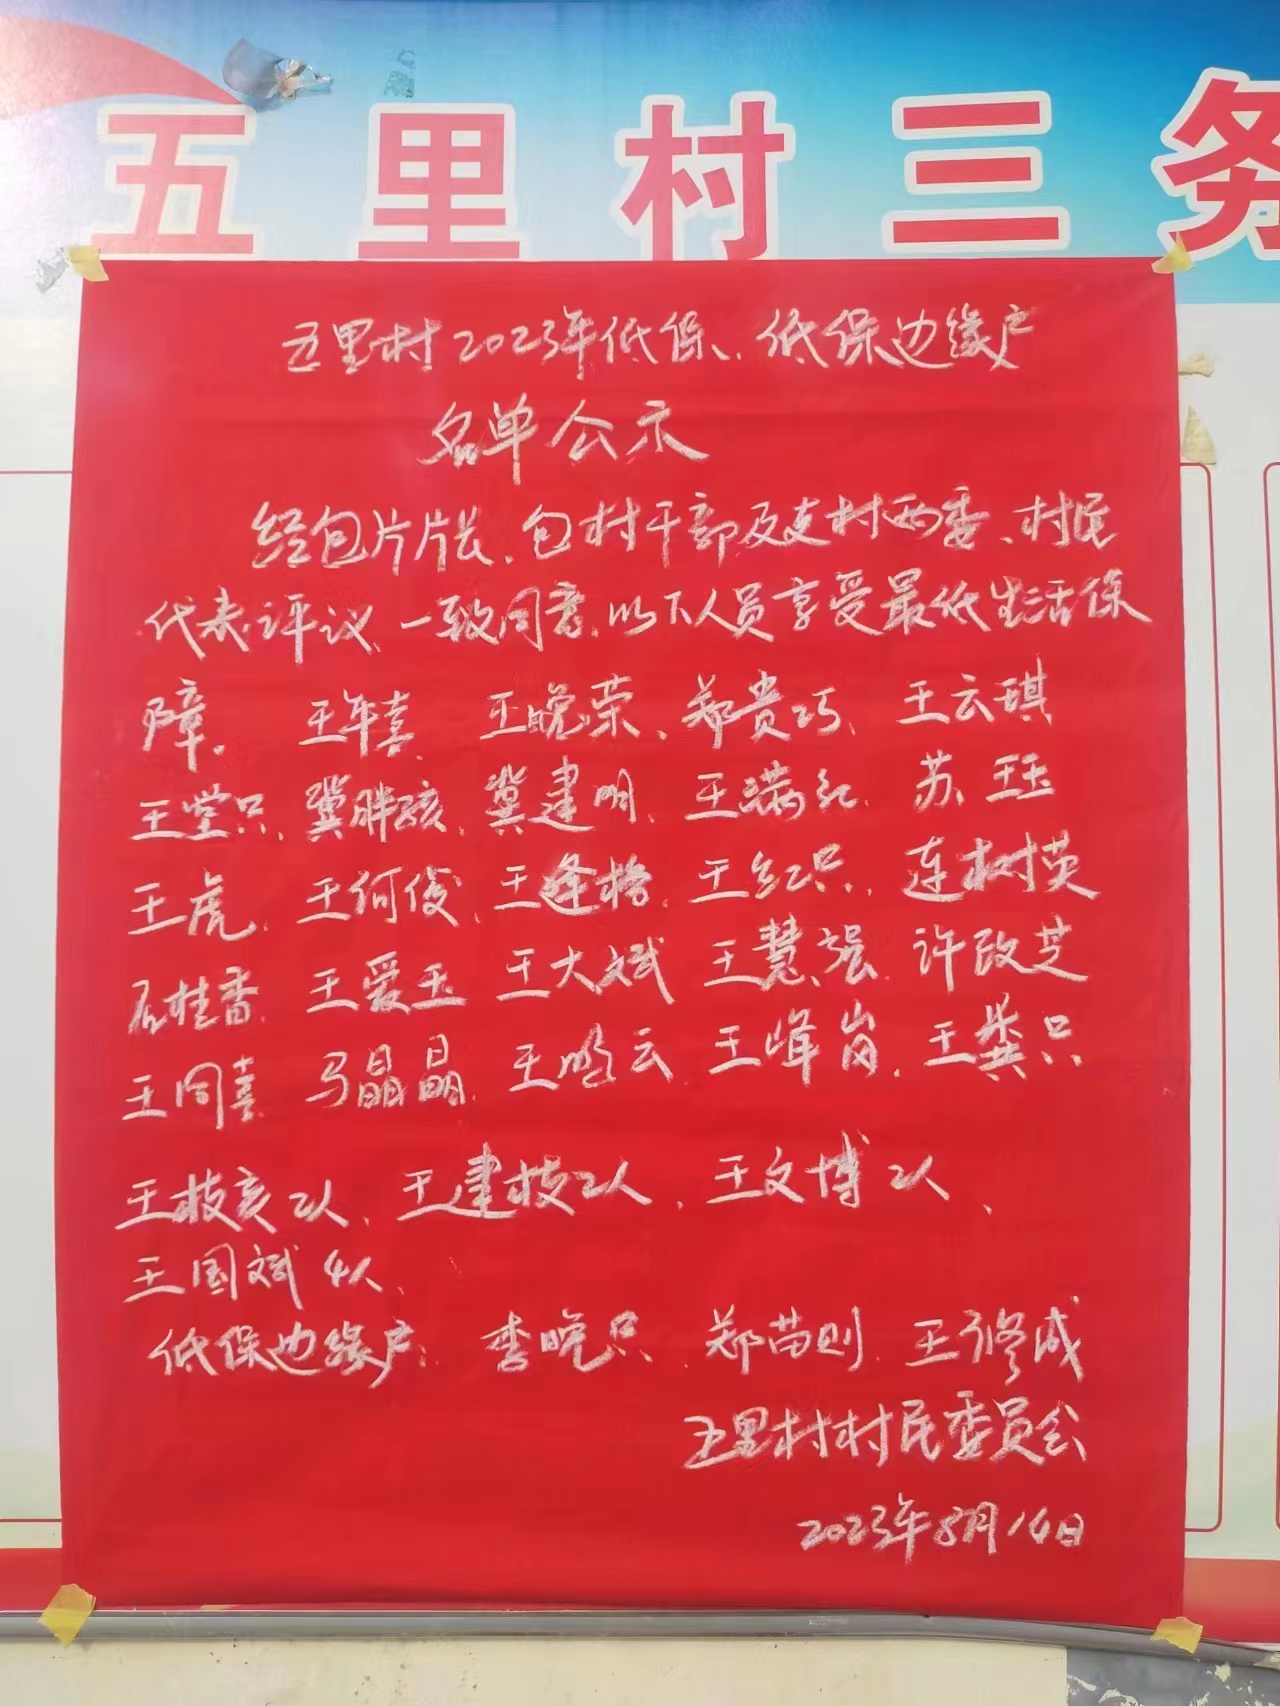 五里村三务
五里村2023年低保、低保边缘户
名单公示
经包片片长、包村干部及支村两委、村民
代表评议、一致同意，以下人员享受最低生活保
障。 王年喜、王晚荣、郑贵巧、王云琪
王堂只、冀胖孩、冀建明、王满红、苏玉
王虎、王何俊、王逢格、王红只、连树英
石桂香、王爱玉、王大斌、王慧强、许改芝
王同喜、马晶晶、王鸣云、王峰岗、王粪只
王枝亥2人、王建枝2人、王文博2人、
王国斌4人、
低保边缘户：李晚只、郑苗则、王修成
五里村村民委员会
2023年8月16日